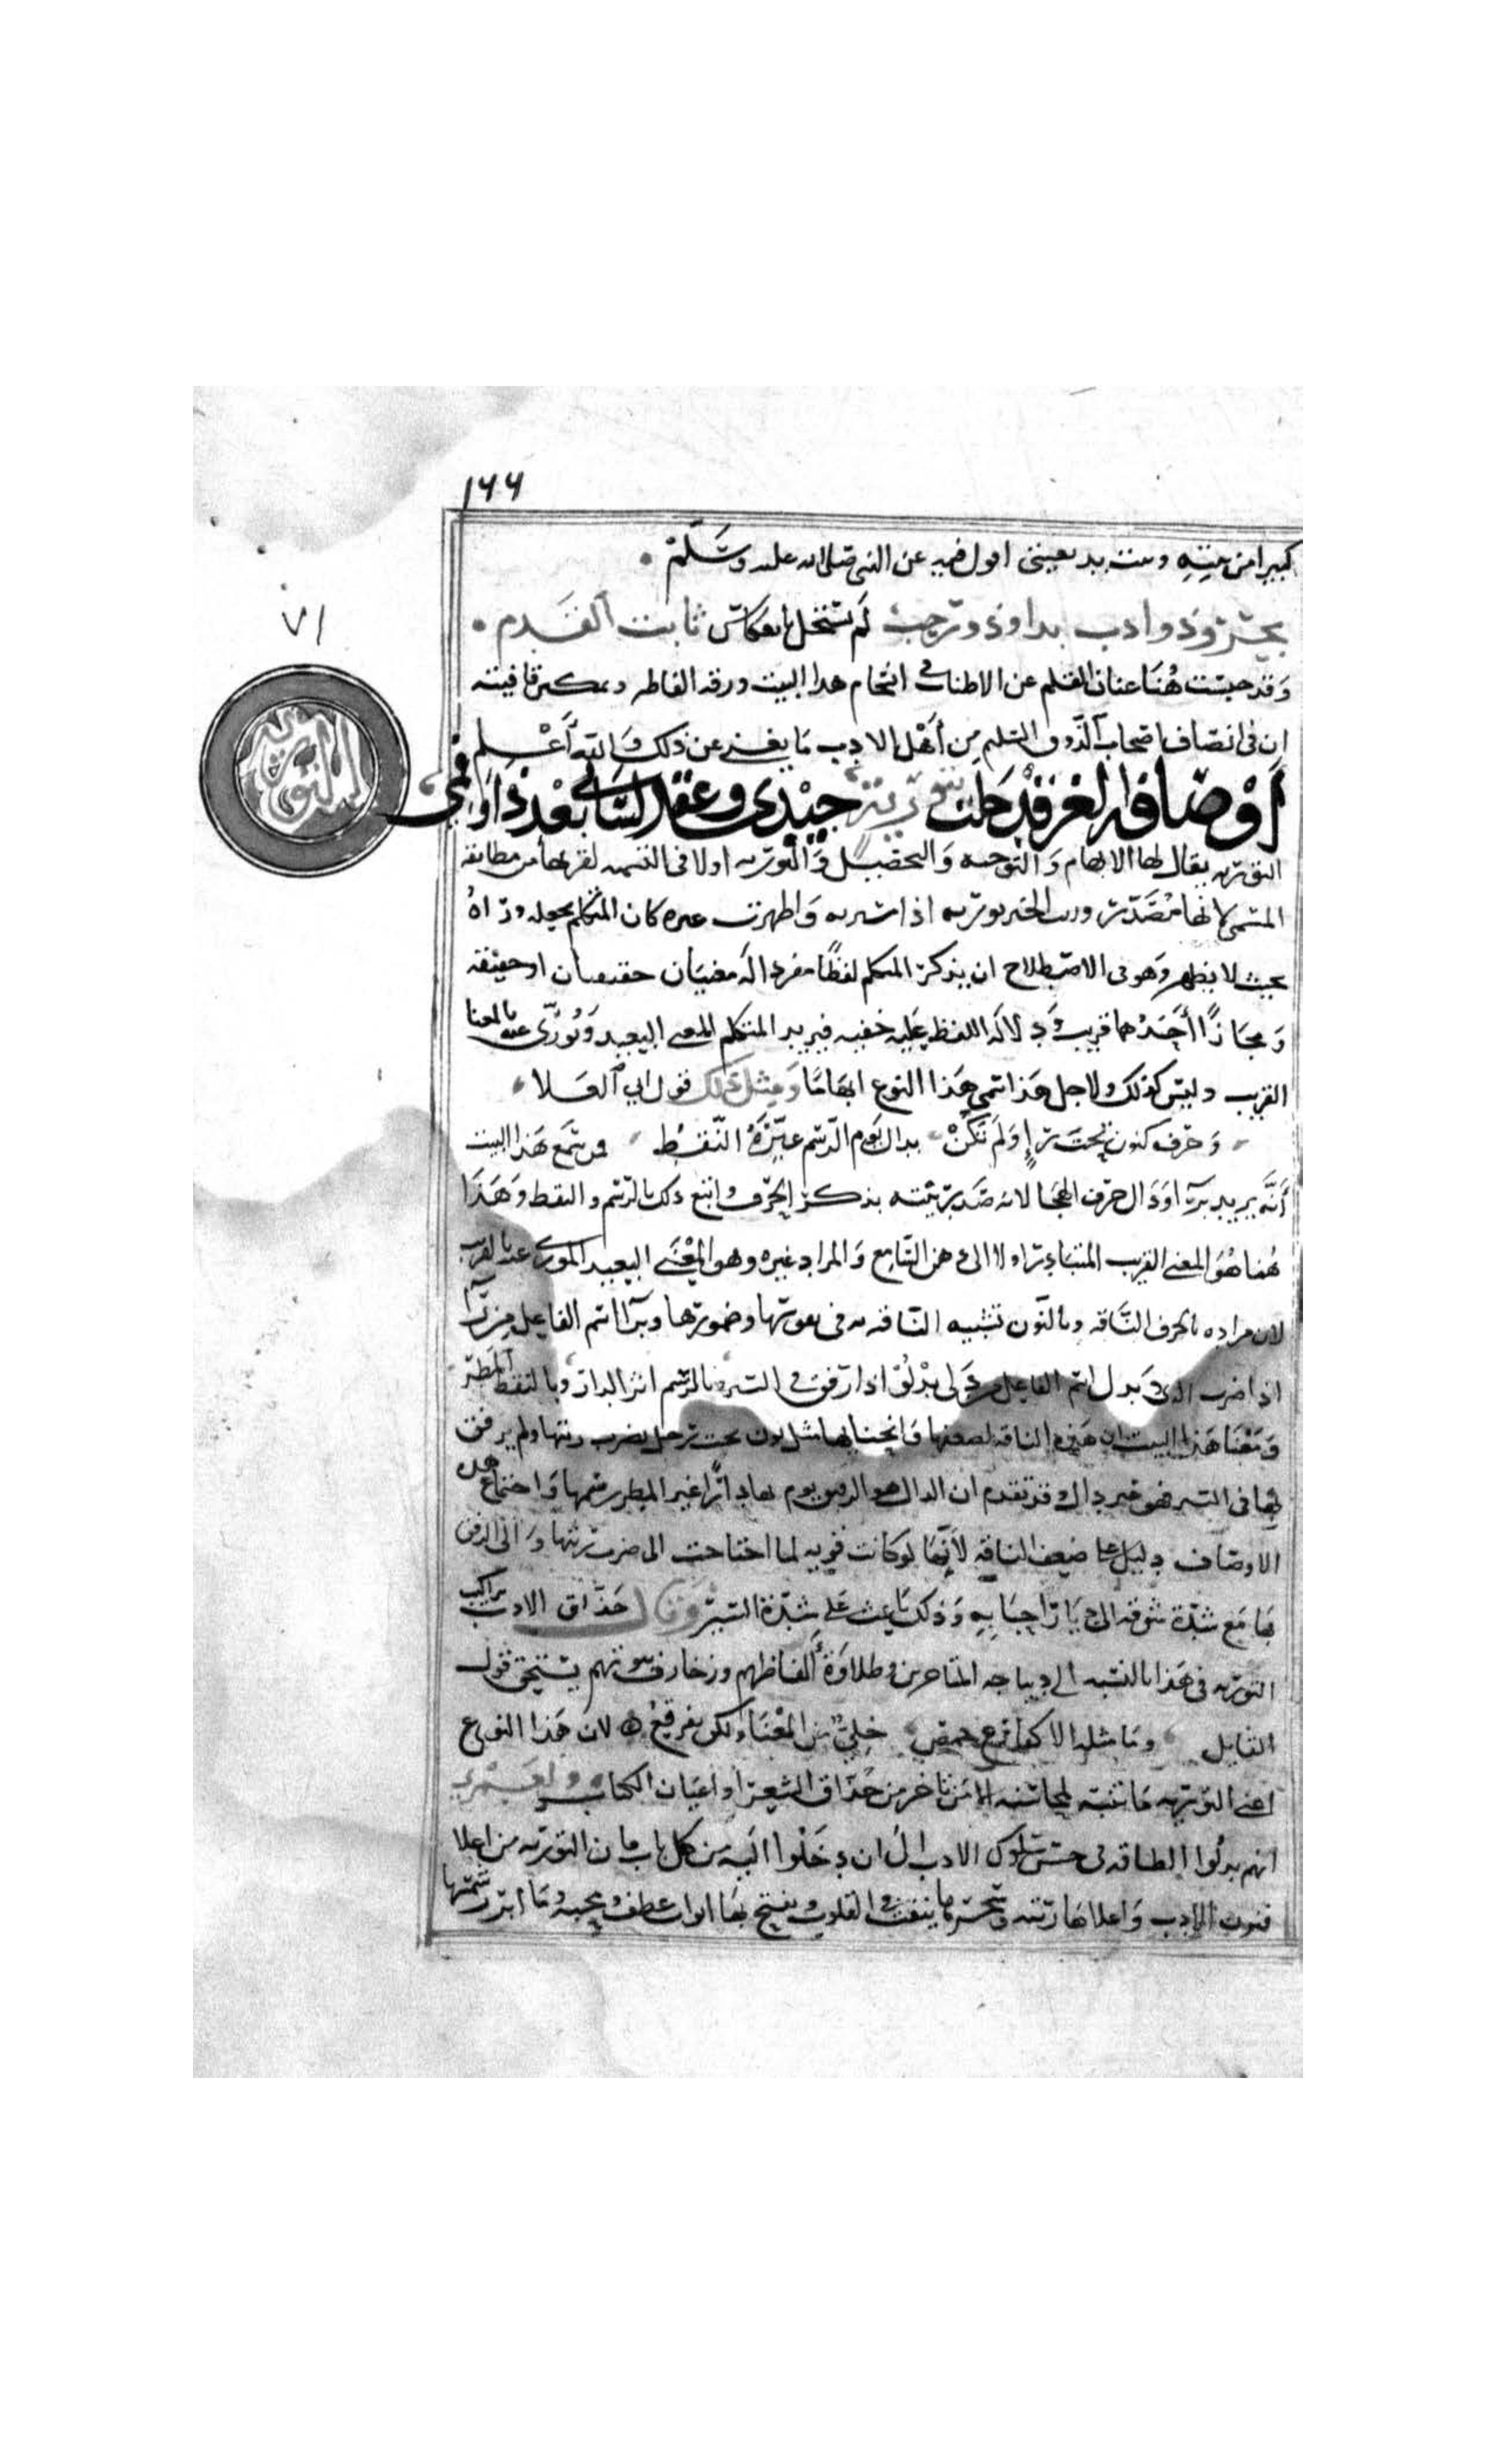 ١٦٦
كبيرا من بيته وبيت بديعيتي اقول فيه عن النبي صلى الله عليه وسلم
بحسن وذو ادب بدا وذو رحب لم يستحل بانعكاس ثابت القدم
وقد حبست هنا عنان القلم عن الاطناب في انسجام هذا البيت ورقة الفاظه وتمكين قافيته
ان في انصاف اصحاب الذوق السليم من أهل الادب ما يغني عن ذلك والله أعلم
٧١
التورية
أوصافه الغر قد حلت بتورية جيدي وعقد لساني بعد ذا وفمي
التوريه يقال لها الايهام والتوجيه والتخييل والتوريه اولا في التسميه لقربها من مطابقة
المسمى لانها مصدر وريت الخبر توريه اذا سترته واظهرت غيره كان المتكلم يجعله وراه
بحيث لا يظهر وهو في الاصطلاح ان يذكر المتكلم لفظًا مفردا له معنيان حقيقيان او حقيقة
ومجازًا أحدهما قريب ودلالة اللفظ عليه خفيه فيريد المتكلم المعنى البعيد ويُورّى عنه بالمعنا
القريب وليس كذلك ولاجل هذا سمي هذا النوع ايهامًا ومثل ذلك قول ابي العلا
وحرف كنون تحت راءٍ ولم تكنْ بدال يؤم الرسم غيّره النقط فمن سمع هذا البيت
أنه يريد براء ودال حرف الهجا لانه صدر بيته بذكر الحرف واتبع ذلك بالرسم والنقط وهذا
هنا هو المعنى القريب المتبادر اولا الى ذهن السامع والمراد غيره وهو المعنى البعيد المورى عنه بالقريب
لان مراده بالحرف الناقه وبالنون تشبيه الناقه به في تقويسها وضمورها وبراء اسم الفاعل من رأى
اذا ضرب الرئة وبدال اسم الفاعل من دلى يدلُو اذا رفق في السير وبالرسم اثر الدار وبالنقط المطر
ومعنا هذا البيت ان هذه الناقه لضعفها وانحنايها مثل نون تحت رجل يضرب رئتها ولم يرفق
بها في السير فهو غير دال وقد تقدم ان الدال هو الرفيق يوم بها دارًا غير المطر رسمها واجتماع هذه
الاوصاف دليل على ضعف الناقه لأنها لو كانت قويه لما احتاجت الى ضرب رئتها والى الرفق
بها مع شدة شوقه الى ديار احبابه وذلك باعث على شدة السير وقال حذاق الادب تراكيب
التوريه في هذا بالنسبه الى ديباجه المتاخرين وطلاوة ألفاظهم وزخارف بيوتهم يستحق قول
القايل وما مثله الا كفارغ حمص خليّ من المعنا ولكن يفرقع لان هذا النوع
اعني التوريه ما تنبه لمحاسنه الا من تاخر من حذاق الشعرا واعيان الكتاب ولعمري
انهم بذلُوا الطاقه في حسن سلوك الادب الى ان دخلوا اليه من كل باب فان التوريه من اعلا
فنون الادب واعلاها رتبه وسحرها ينفث في القلوب ويفتح بها ابواب عطف ومحبه وما ابرز شمسها